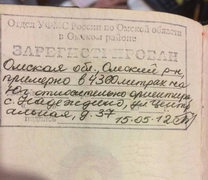 Отдел УФМС России по Омской области
в Омском районе
ЗАРЕГИСТРИРОВАН
Омская обл. Омский р-н,
примерно в 4300 метрах на
юг относительно ориентира
с. Надеждино, ул Центр
альная, д. 37
15.05.12